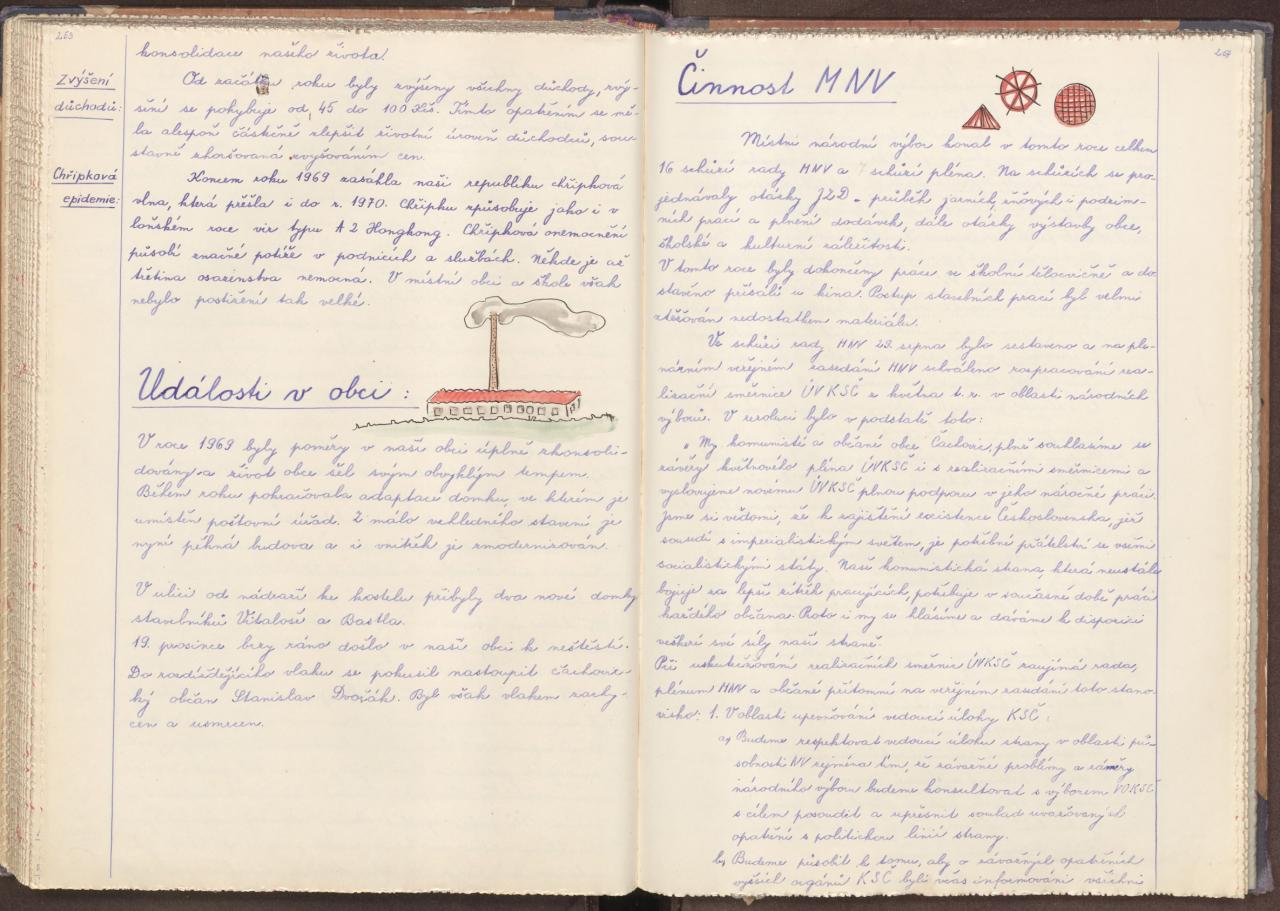 263
konsolidace našeho života.
Zvýšení
důchodů:
Od začátku roku byly zvýšeny všechny důchody, zvý-
šení se pohybuje od 45 do 100 Kčs. Tímto opatřením se mě-
la alespoň částečně zlepšit životní úroveň důchodců, sou-
stavně zhoršovaná zvyšováním cen.
Chřipková
epidemie:
Koncem roku 1969 zasáhla naši republiku chřipková
vlna, která přešla i do r. 1970. Chřipku způsobuje jako i v
loňském roce vir typu A 2 Hongkong. Chřipková onemocnění
působí značné potíže v podnicích a službách. Někde je až
třetina osazenstva nemocná. V místní obci a škole však
nebylo postižení tak velké.
Události v obci:
V roce 1969 byly poměry v naší obci úplně zkonsoli-
dovány a život obce šel svým obvyklým tempem.
Během roku pokračovala adaptace domku, ve kterém je
umístěn poštovní úřad. Z málo vzhledného stavení je
nyní pěkná budova a i vnitřek je zmodernizován.
V ulici od nádraží ke kostelu přibyly dva nové domky
stavebníků Vitaloše a Bastla.
19. prosince brzy ráno došlo v naší obci k neštěstí.
Do rozjíždějícího vlaku se pokusil nastoupit čachovic-
ký občan Stanislav Dvořák. Byl však vlakem zachy-
cen a usmrcen.
Činnost MNV
Místní národní výbor konal v tomto roce celkem
16 schůzí rady MNV a 7 schůzí pléna. Na schůzích se pro-
jednávaly otázky JZD - průběh jarních, žňových i podzim-
ních prací a plnění dodávek, dále otázky výstavby obce,
školské a kulturní záležitosti.
V tomto roce byly dokončeny práce ve školní tělocvičně a do
stavěno přísálí u kina. Postup stavebních prací byl velmi
ztěžován nedostatkem materiálu.
Ve schůzi rady MNV 29. srpna bylo sestaveno a na ple-
nárním veřejném zasedání MNV schváleno rozpracování rea-
lizační směrnice ÚVKSČ z května t. r. v oblasti národních
výborů. V rezoluci bylo v podstatě toto:
"My komunisté a občané obce Čachovic, plně souhlasíme se
závěry květnového pléna ÚVKSČ i s realizačními směrnicemi a
vyslovujeme novému ÚVKSČ plnou podporu v jeho náročné práci.
Jsme si vědomi, že k zajištění existence Československa, jež
sousedí s imperialistickým světem, je potřebné přátelství se všemi
socialistickými státy. Naše komunistická strana, která neustále
bojuje za lepší zítřek pracujících, potřebuje v současné době práci
každého občana. Proto i my se hlásíme a dáváme k dispozici
veškeré své síly naší straně.
Při uskutečňování realizačních směrnic ÚVKSČ zaujímá rada,
plénum MNV a občané přítomni na veřejném zasedání toto stano-
visko: 1. V oblasti upevňování vedoucí úlohy KSČ:
a) Budeme respektovat vedoucí úlohu strany v oblasti pů-
sobnosti NV zejména tím, že závažné problémy a záměry
národního výboru budeme konsultovat s výborem VOKSČ
s cílem posoudit a upřesnit soulad uvažovaných
opatření s politickou linií strany.
b) Budeme působit k tomu, aby o závažných opatřeních
vyšších orgánů KSČ byli včas informováni všichni